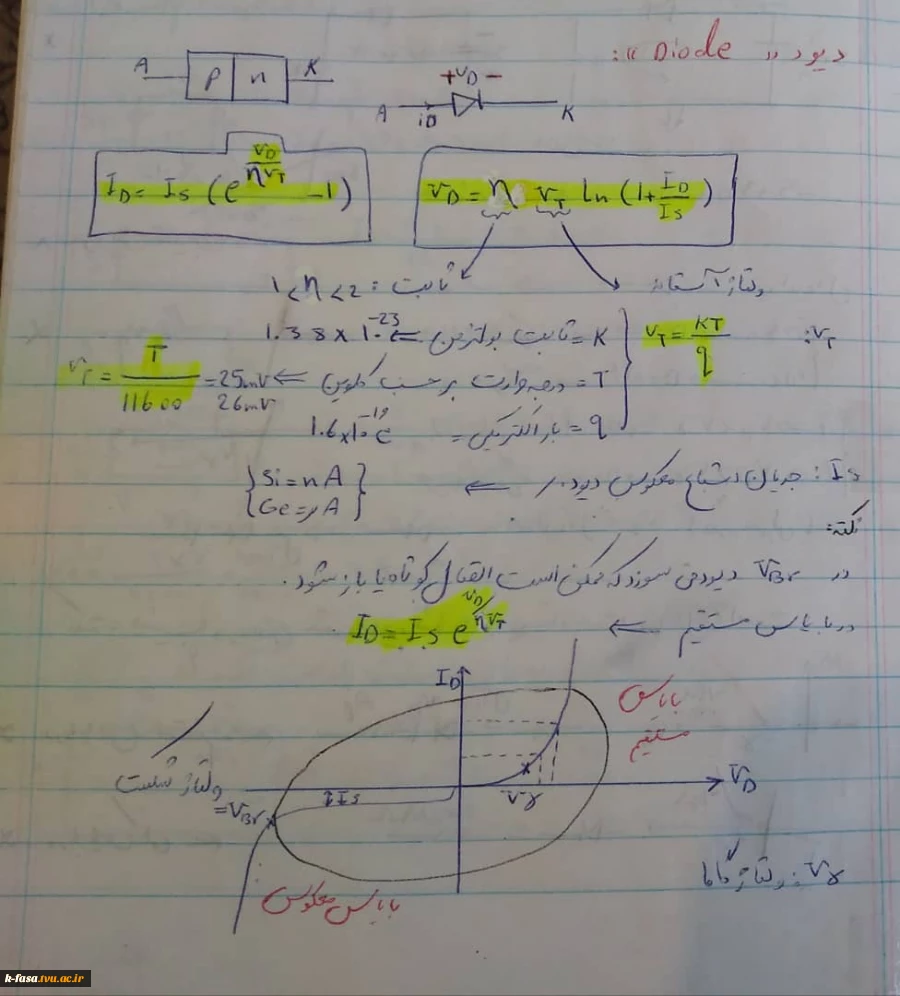 دیود « Diode »:
A p n K
+VD−
A iD K
ID = Is (e^(VD/ηVT) −1)
VD = η VT ln (1+ ID/Is)
ولتاژ آستانه
ثابت : 1<η<2
VT:
VT = KT/q
K = ثابت بولتزمن ⇐ 1.38×10^-23
T = درجه حرارت بر حسب کلوین ⇐ 25mv 26mv = T/11600 = VT
q = بار الکتریکی = 1.6×10^-19 c
Is : جریان اشباع معکوس دیود ⇐ {Si = nA Ge = μA}
نکته:
در VBr دیود می سوزد که ممکن است اتصال کوتاه یا باز شود.
در بایاس مستقیم ⇐ ID = Is e^(VD/ηVT)
ID
بایاس
مستقیم
ولتاژ شکست
= VBr
↕Is
Vγ
VD
Vγ : ولتاژ گاما
بایاس معکوس
k-fasa.tvu.ac.ir